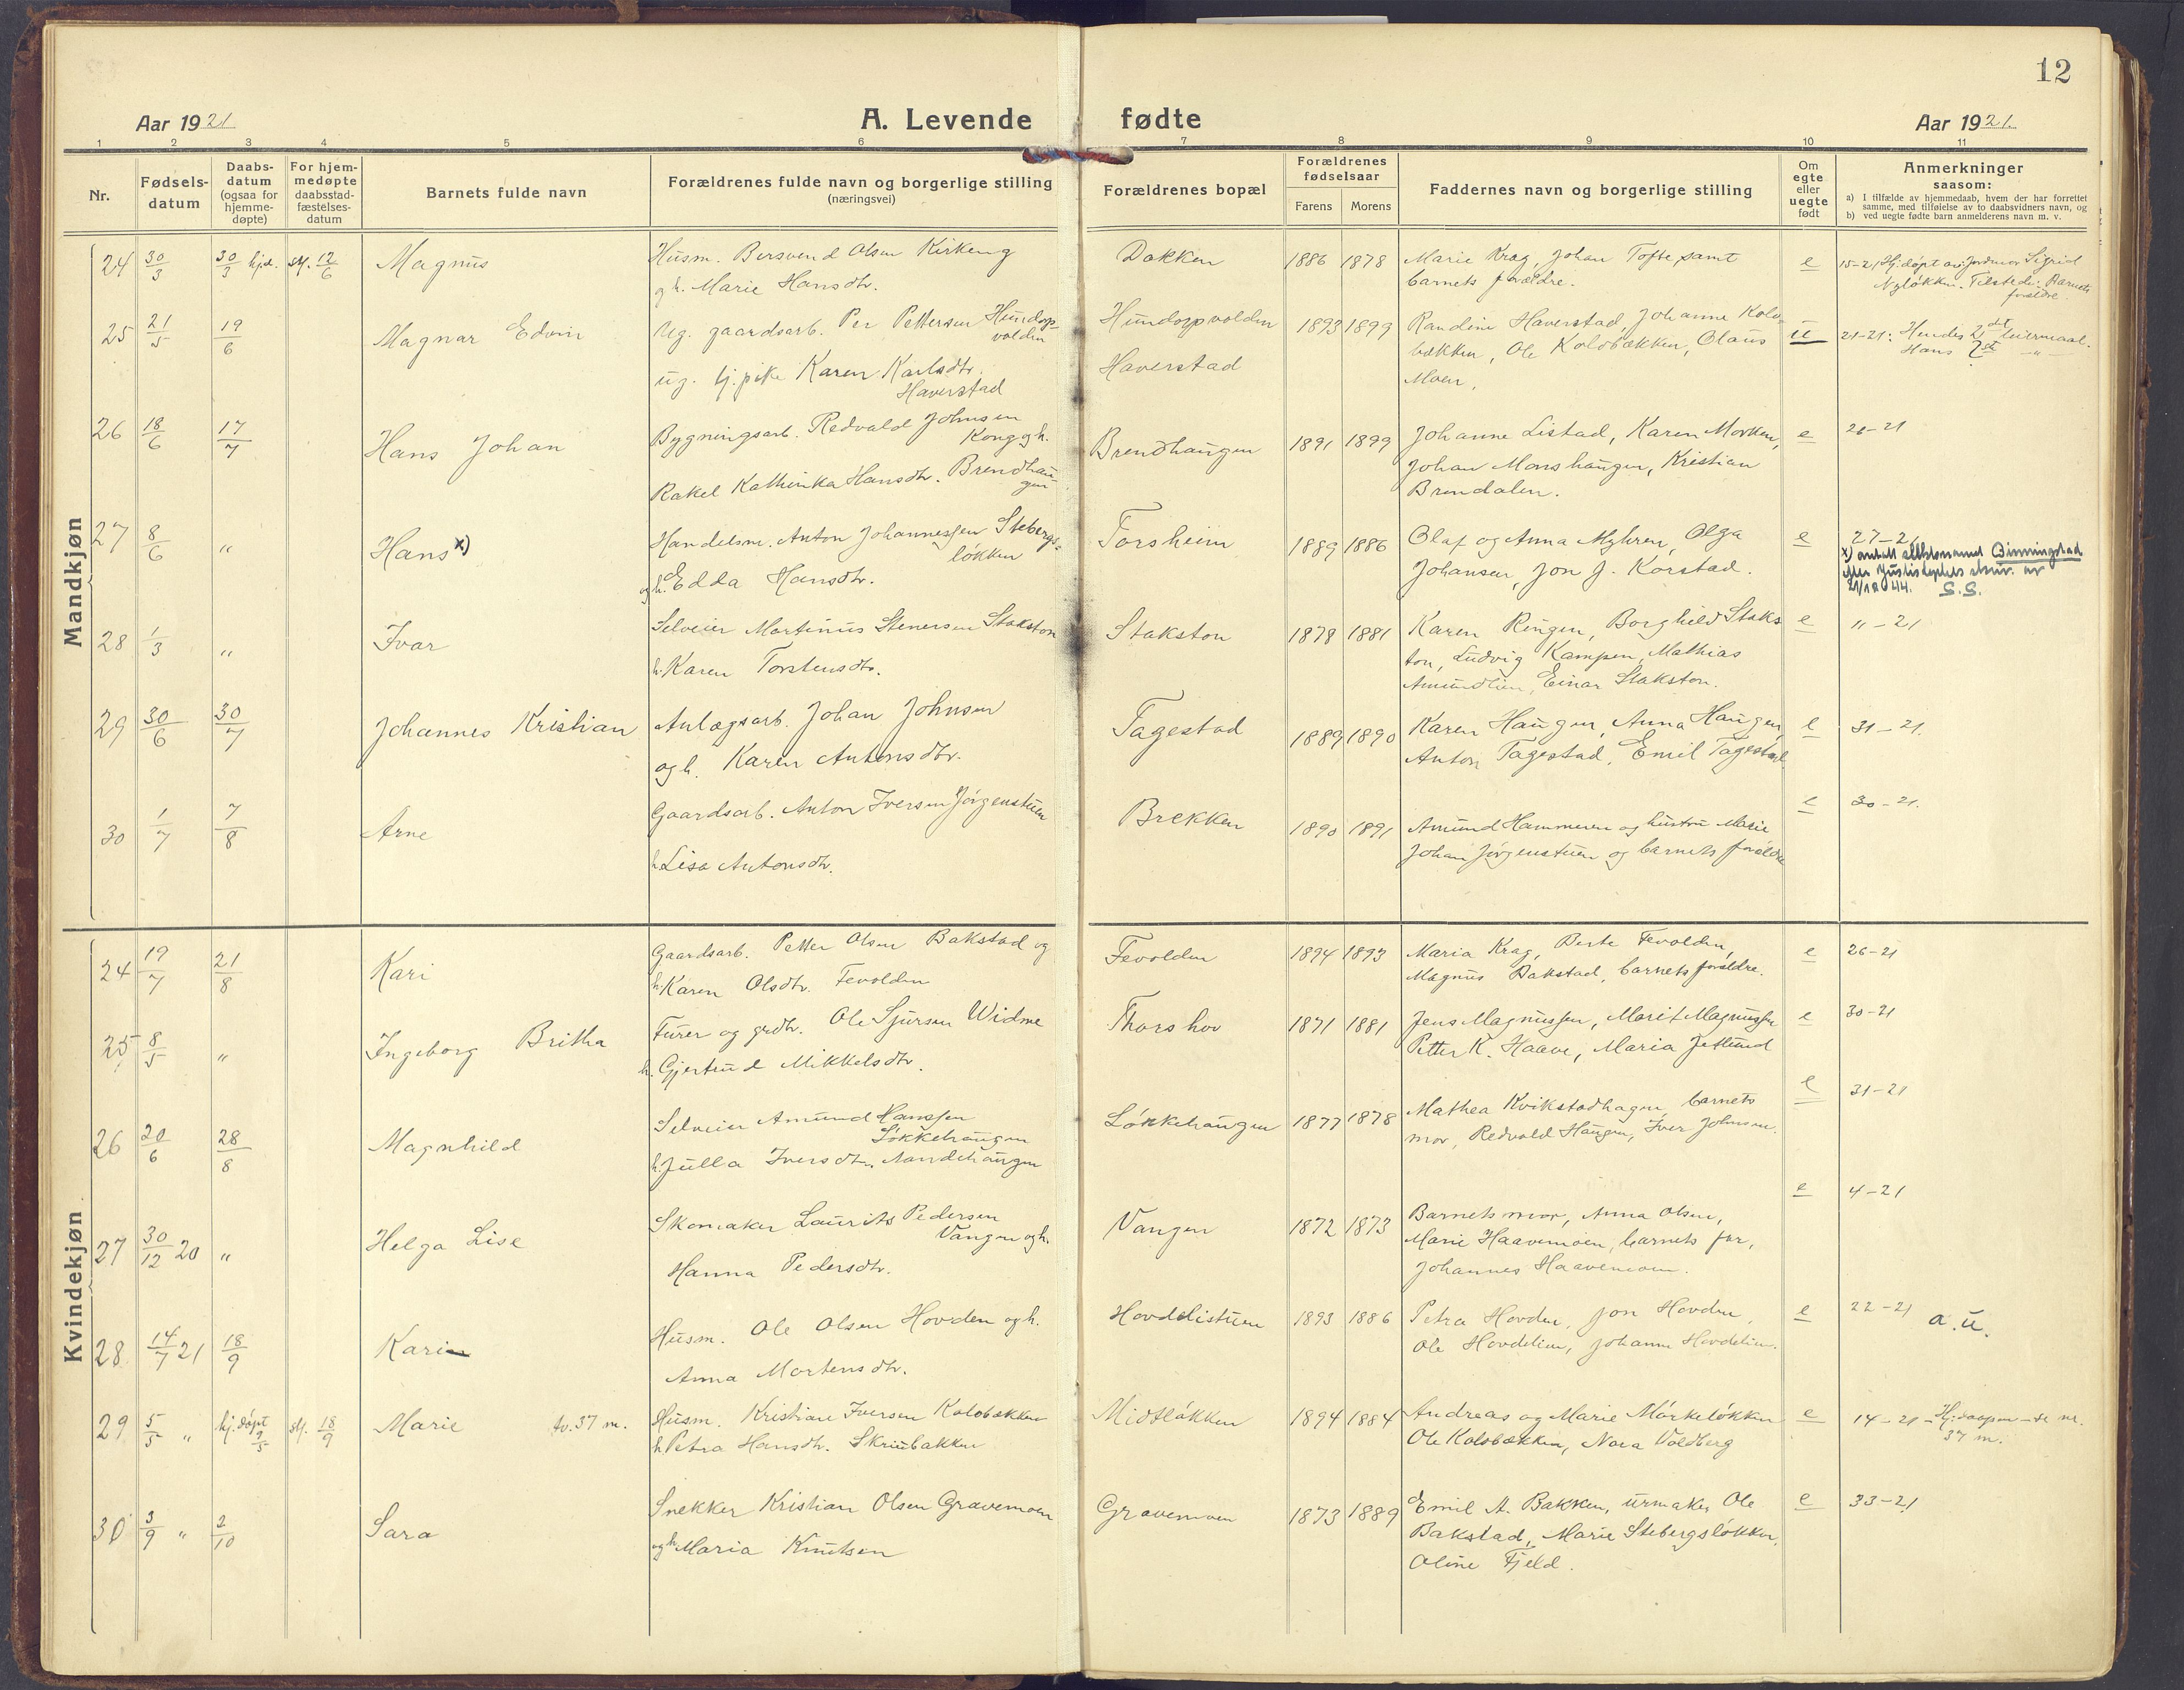 12
Aar 1921
A. Levende fødte
Aar 1921.
1 2 3 4 5 6 7 8 9 10 11
Nr.
Fødsels-
datum
Daabs-
datum
(ogsaa for
hjemme-
døpte)
For hjem-
medøpte
daabsstad-
fæstelses-
datum
Barnets fulde navn
Forældrenes fulde navn og borgerlige stilling
(næringsvei)
Forældrenes bopæl
Forældrenes
fødselsaar
Farens Morens
Faddernes navn og borgerlige stilling
Om
egte
eller
uegte
født
Anmerkninger
saasom:
a) I tilfælde av hjemmedaab, hvem der har forrettet
samme, med tilføielse av to daabsvidners navn, og
b) ved uegte fødte barn anmelderens navn m. v.
Mandkjøn
24 30/3 30/3 hjd. st. 12/6 Magnus
Husm. Bersvend Olsen Kirkeng
og h. Marie Hansdtr.
Dokken 1886 1878
Marie Krag, Johan Tofte samt
barnets forældre.
e
15-21 Hj.døpt av: Jordmor Sigrid
Nyløkken. Tilstede: Barnets
foreldre.
25 21/5 19/6 Magnar Edvin
Ug. gaardsarb. Per Pettersen Hundorp-
volden
ug. tj. pike Karen Karlsdtr.
Haverstad
Hundorpvolden
Haverstad
1893 1899
Randine Haverstad, Johanne Kolo-
bækken, Ole Kolobækken, Olaus
Moen.
u
21-21: Hendes 2det leiermaal.
Hans 2det -"-
26 18/6 17/7 Hans Johan
Bygningsarb. Redvald Johnsen
Kong og h.
Rakel Kathinka Hansdtr. Brendhau-
gen
Brendhaugen 1891 1899
Johanne Listad, Karen Morken,
Johan Monshaugen, Kristian
Brendalen.
e
26-21
27 8/6 " Hans x)
Handelsm. Anton Johannessen Stebergs-
løkken
og h. Edda Hansdtr.
Forsheim 1889 1886
Olaf og Anna Myhren, Olga
Johansen, Jon J. Korstad.
e
27-21
x) antatt slektsnavnet Binningstad
efter Justisdeptets skriv. av
S.S.
28 1/3 " Ivar
Selveier Martinus Stenersen Stokston
h. Karen Torstensdtr.
Stakston 1878 1881
Karen Ringen, Borghild Staks
ton, Ludvig Kampen, Mathias
Amundlien, Einar Stakston.
e
" - 21
29 30/6 30/7 Johannes Kristian
Anlægsarb. Johan Johnsen
og h. Karen Antonsdtr.
Tagestad 1889 1890
Karen Haugen, Anna Haugen,
Anton Tagestad, Emil Tagestad.
e
31-21.
30 1/7 7/8 Arne
Gaardsarb. Anton Iversen Jørgenstuen
h. Lisa Antonsdtr.
Brekken 1890 1891
Amund Hammeren og hustru Marie
Johan Jørgenstuen og barnets foreldre
e
30-21.
Kvindekjøn
24 19/7 21/8 Kari
Gaardsarb. Petter Olsen Bakstad og
h. Karen Olsdtr. Fevolden
Fevolden 1894 1893
Maria Krag, Berte Fevolden,
Magnus Bakstad, barnets foreldre.
e
26-21
25 8/5 " Ingeborg Britha
Furer og grdbr. Ole Sjursen Widme
h. Gjertrud Mikkelsdtr.
Thorshov 1871 1881
Jens Magnussen, Marit Magnussen
Petter K. Haave, Maria Jetlund
e
30-21
26 20/6 28/8 Magnhild
Selveier Amund Hanssen
Løkkehaugen
h. Julla Iversdtr. Sandehaugen
Løkkehaugen 1877 1878
Mathea Kvikstadhagen, barnets
mor, Redvald Haugen, Iver Johnsen.
e
31-21
27 30/12 20 " Helga Lise
Skomaker Laurits Pedersen
Vangen og h.
Hanna Pedersdtr.
Vangen 1872 1873
Barnets mor, Anna Olsen,
Marie Haavemoen, barnets far,
Johannes Haavemoen.
e
4-21
28 14/7 21 18/9 Karin
Husm. Ole Olsen Hovden og h.
Anna Mortensdtr.
Hovdelistuen 1893 1886
Petra Hovden, Jon Hovden,
Ole Hovdelien, Johanne Hovdelien.
e
22-21 a.u.
29 5/5 " hj.døpt 9/5 st. 18/9 Marie tv. 37 m.
Husm. Kristian Iversen Kolobækken
h. Petra Hansdtr. Skriubakken
Midtløkken 1894 1884
Andreas og Marie Mørkeløkken
Ole Kolobækken, Nora Voldberg
e
14-21 - Hj. daapen - se nr.
37 m.
30 3/9 " 2/10 Sara
Snekker Kristian Olsen Gravemoen
og h. Maria Knutsen
Gravemoen 1873 1889
Emil A. Bakken, urmaker Ole
Bakstad, Marie Stebergsløkken,
Oline Fjeld.
e
33-21